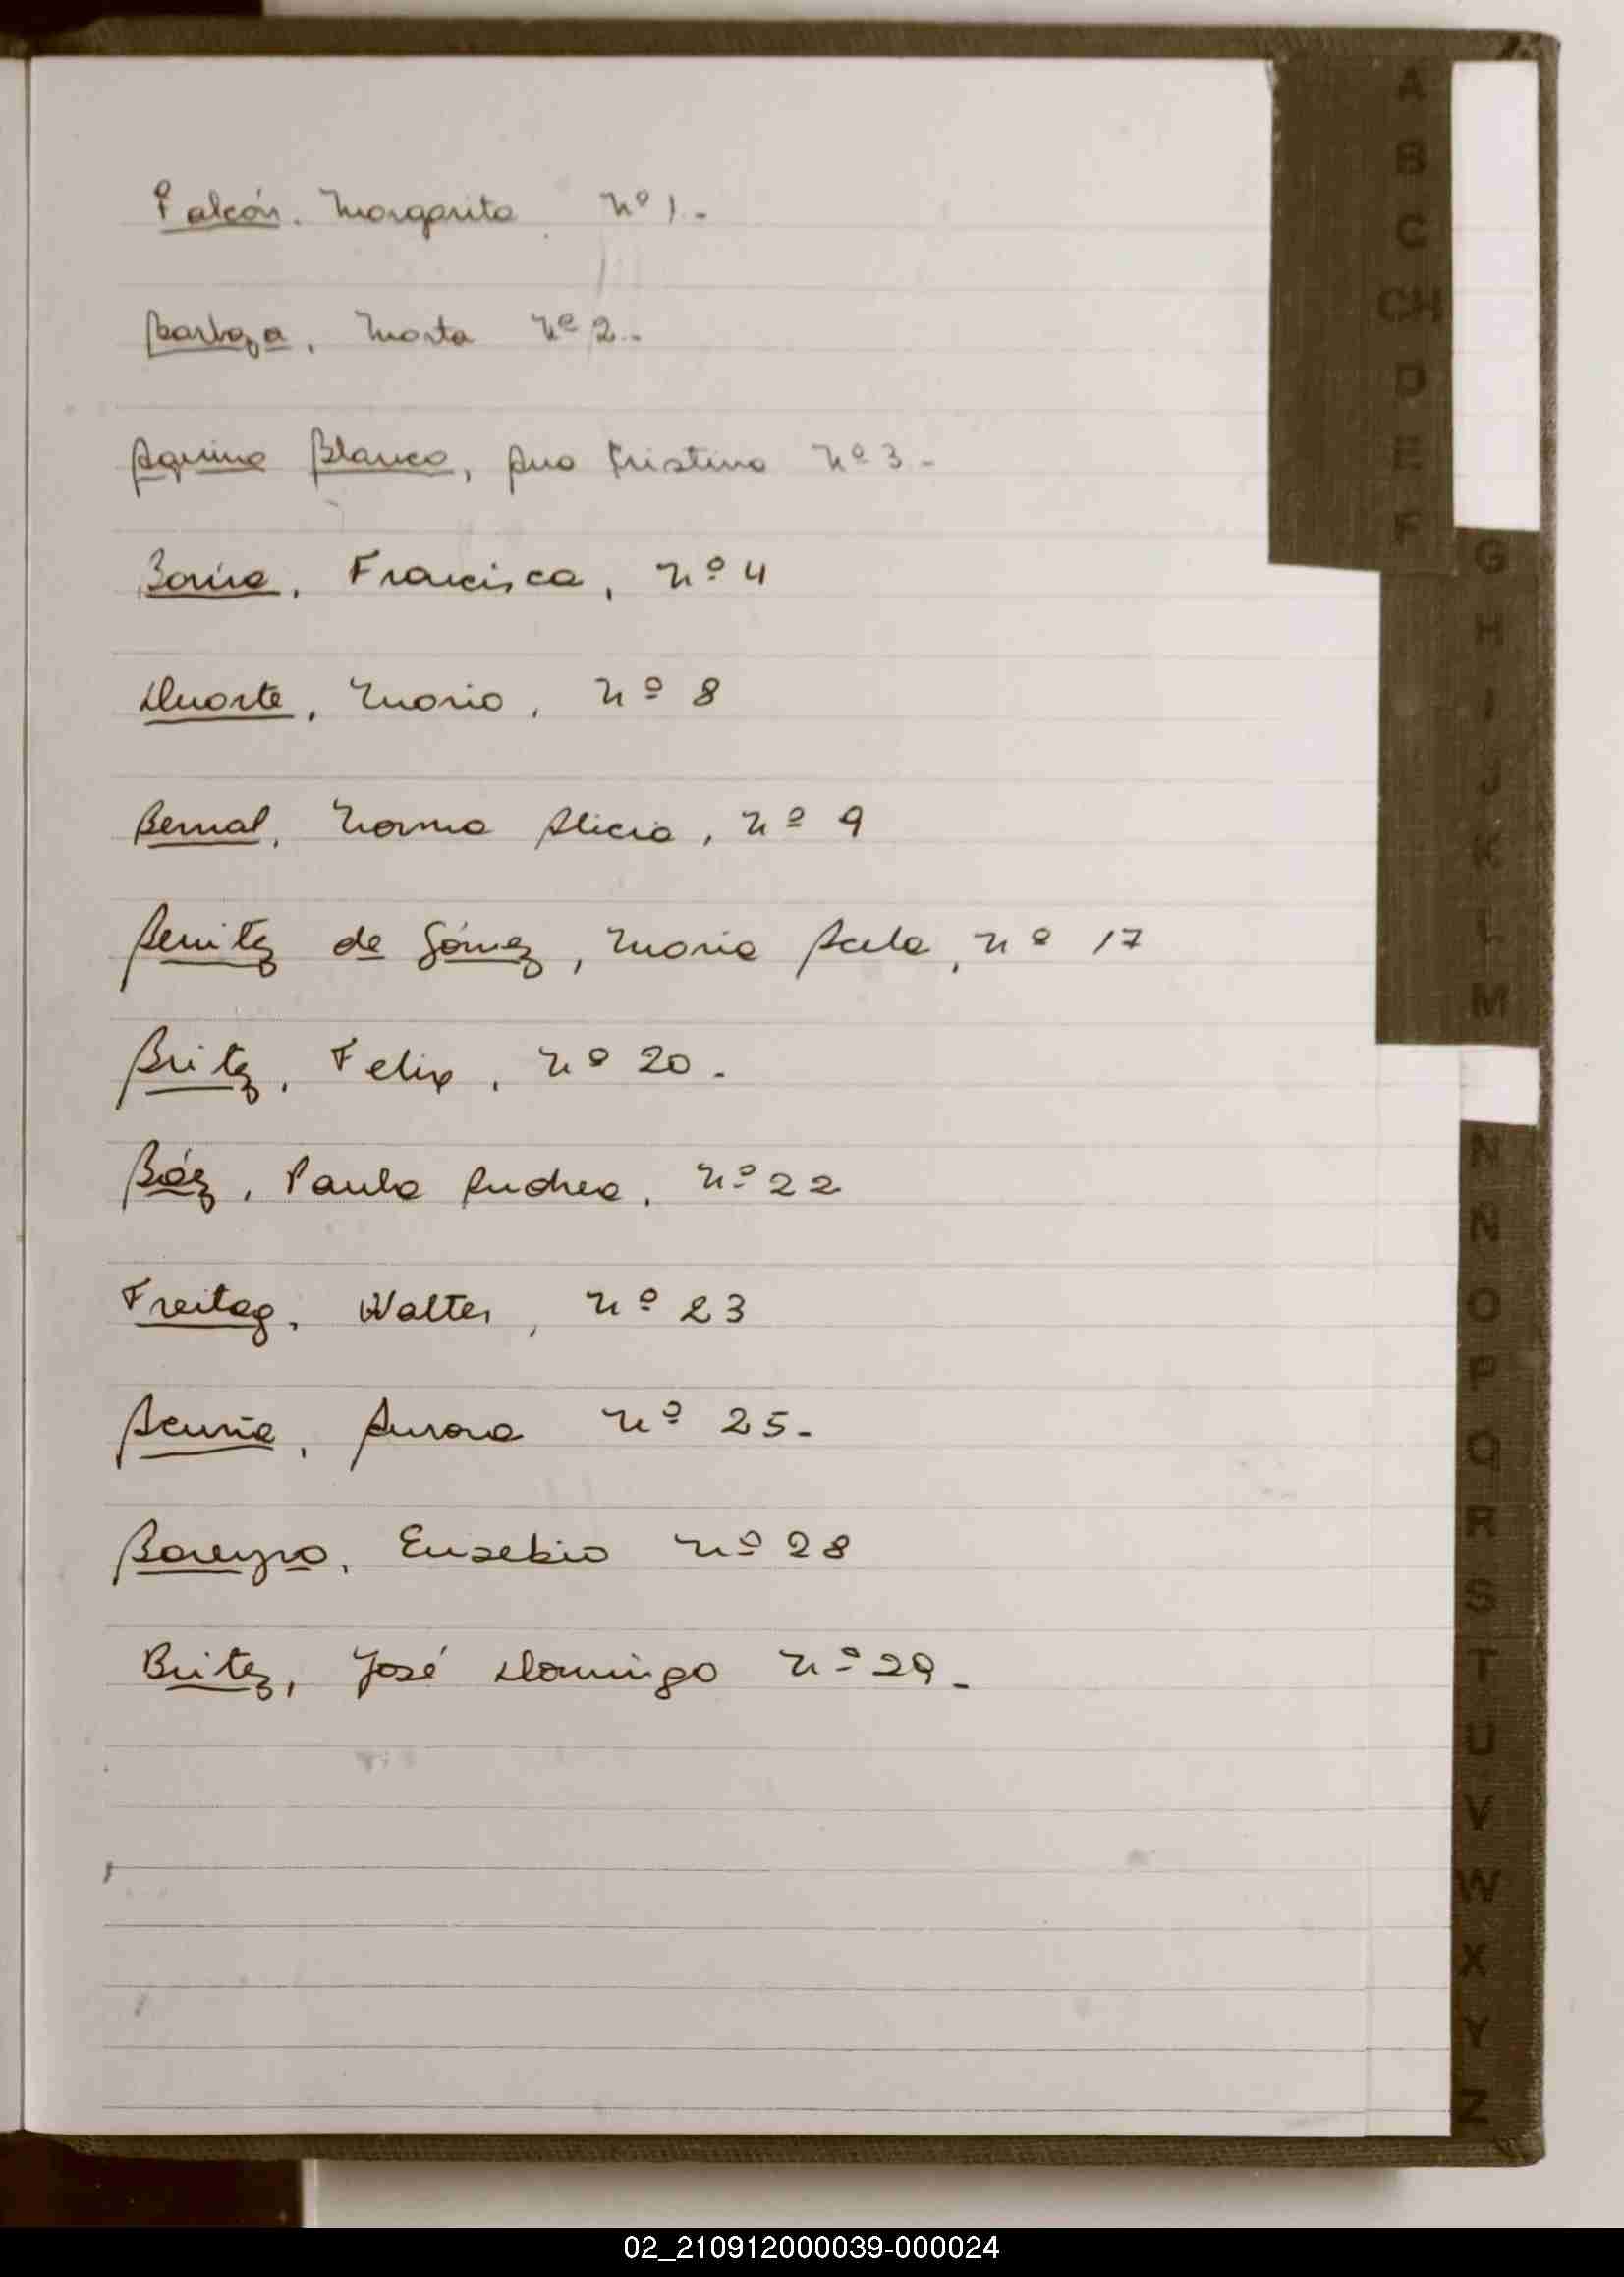 Falcón. Margarita nº 1.-
Barboza, Marta nº 2.-
Aquino Blanco, Ana Cristina nº 3-
Francisca, nº 4
Duarte, Mario, nº 8
Bernal, Norma Alicia, nº 9
Benitez de Gómez, Maria Adela, nº 17
Britez, Felix, nº 20.
Báez, Paula Andrea, nº 22
Freitag, Walter, nº 23
Acuña, Aurora nº 25.
Bareyro, Eusebio nº 28
Britez, José Domingo nº 29.
A
B
C
CH
D
E
F
G
H
I
J
K
L
M
N
Ñ
O
P
Q
R
S
T
U
V
W
X
Y
Z
02_210912000039-000024